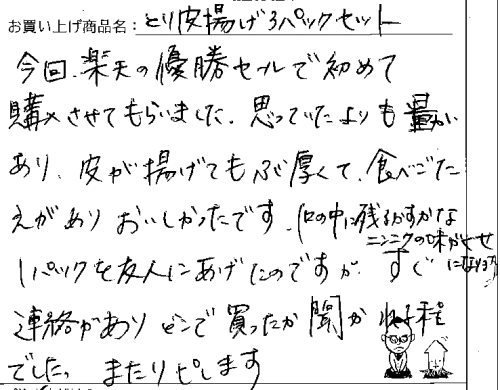 お買い上げ商品名：とり皮揚げ3パックセット
今回、楽天の優勝セールで初めて
購入させてもらいました。思っていたよりも量が
あり、皮が揚げてもぶ厚くて、食べごた
えがありおいしかったです。口の中に残るかすかな
ニンニクの味がくせになります
1パックを友人にあげたのですが、すぐ
連絡がありどこで買ったか聞かれる程
でした。またリピします